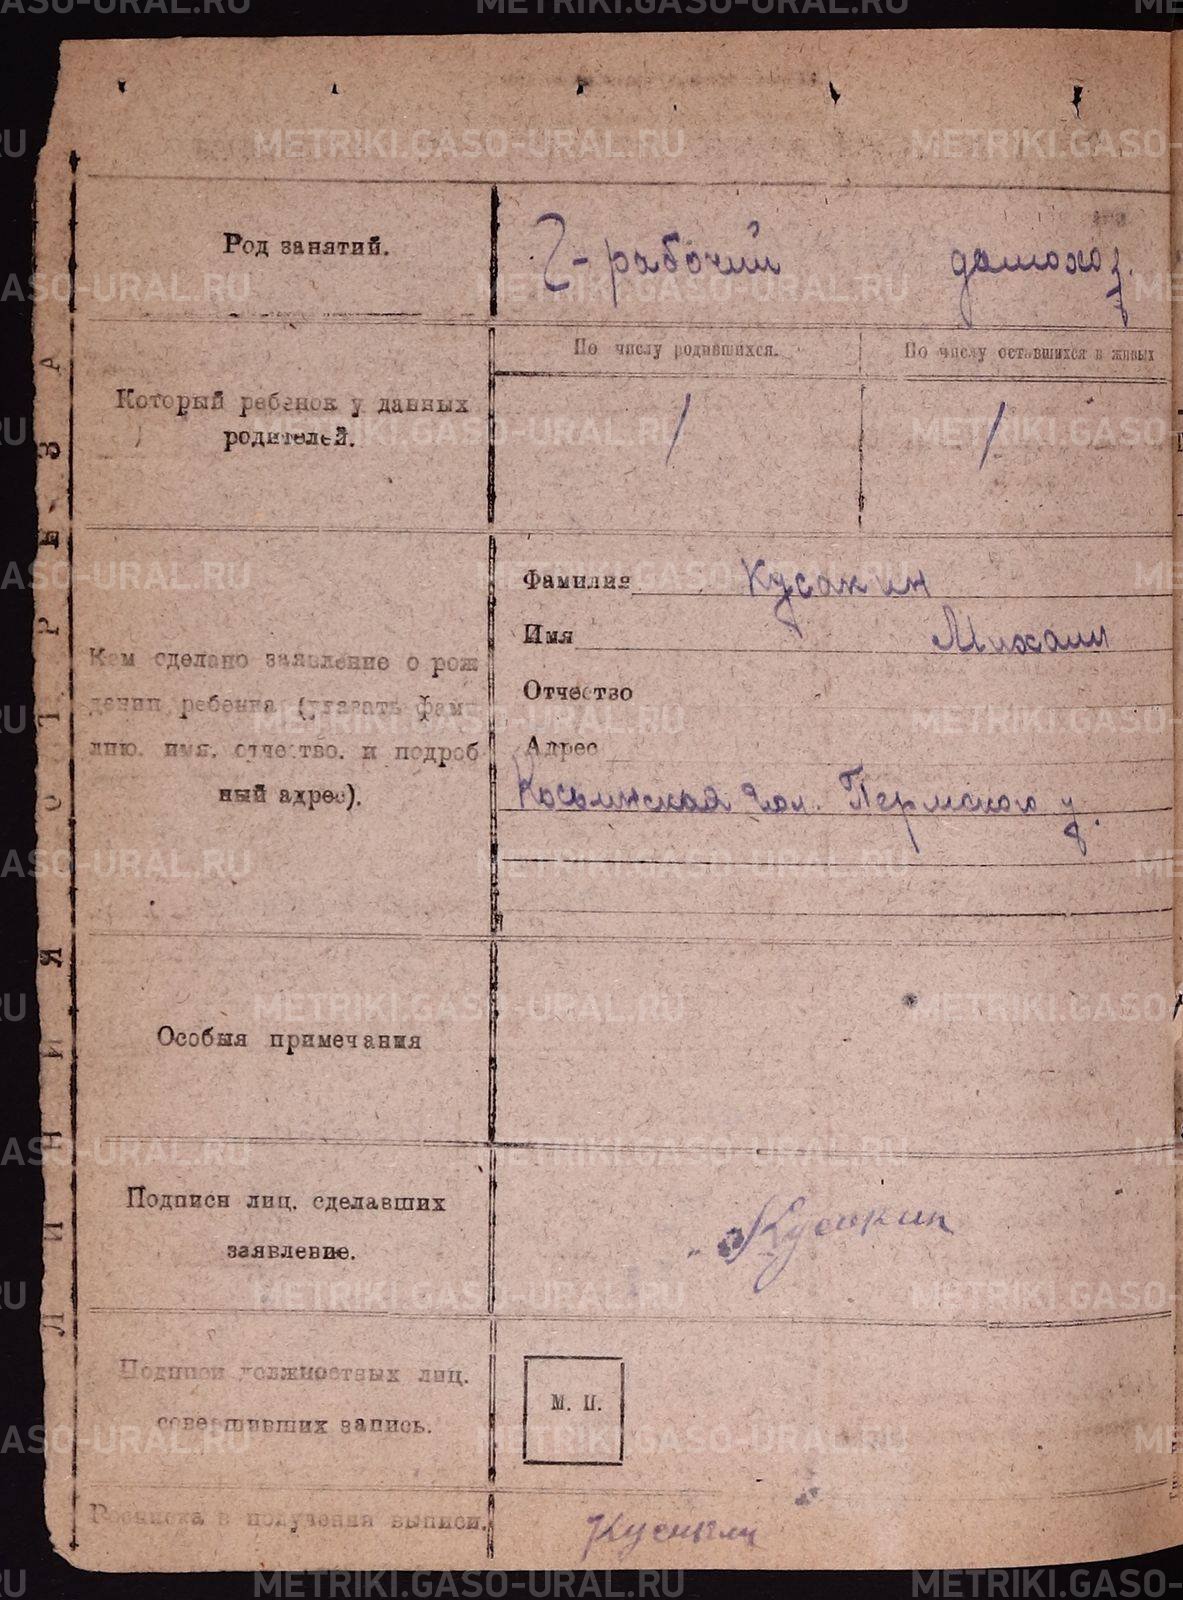 Род занятий.
Ч-рабочий домохоз.
По числу родившихся.
По числу оставшихся в живых
Который ребенок у данных
родителей.
1 1
Фамилия Кусакин
Имя Михаил
Кем сделано заявление о рож
дении ребенка (указать фами
лию. имя. отчество. и подроб
ный адрес).
Отчество
Адрес
Косьминская вол. Пермского у.
Особыя примечания
Подписи лиц. сделавших
заявление.
Кусакин
Подписи должностных лиц.
совершивших запись.
М. П.
Росписка в получении выписи.
ЛИНИЯ ОТРЕЗА
METRIKI.GASO-URAL.RU